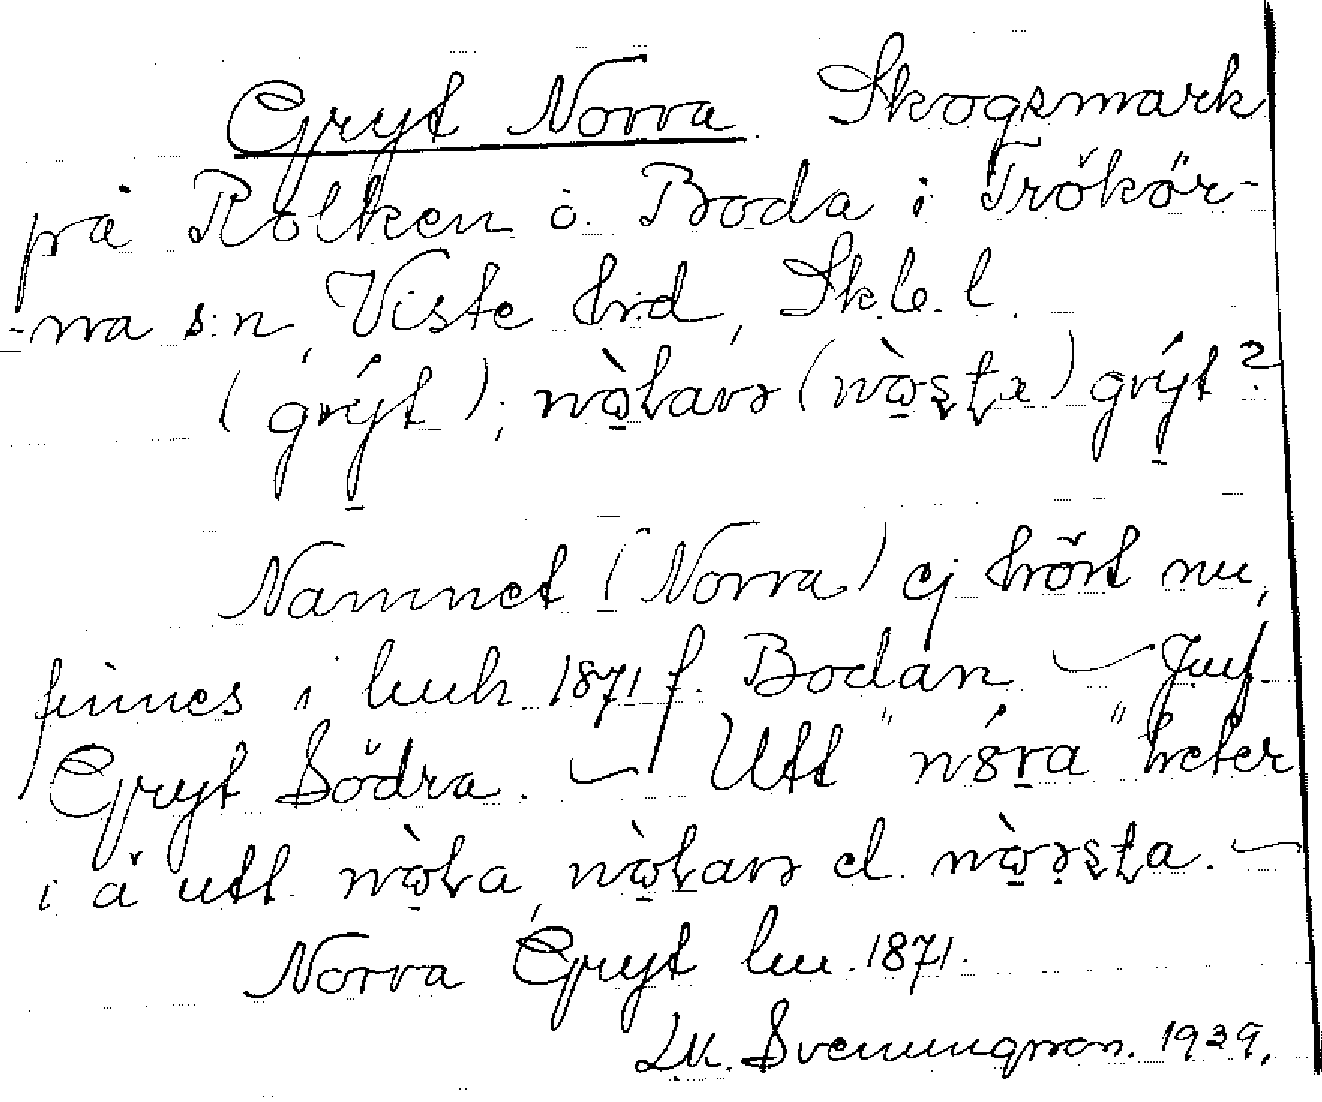 Gryt Norra. Skogsmark
på Rolken o. Boda i Trökör-
-na s:n, Viste hrd, Sk.b.l.
(grýt); nɷ̀ɫarə (nɷ̀ʂʈa) grýt?
Namnet (Norra) ej hört nu,
finnes i luuk 1871 f. Bodan. — Jmf.
Gryt Södra. — Utt "nóra" heter
i ä utt. nɷ̀ɫa, nɷ̀ɫarə el. nɷ̀rʂʈa. —
Norra Gryt luu. 1871.
Lk. Svenungsson. 1939.